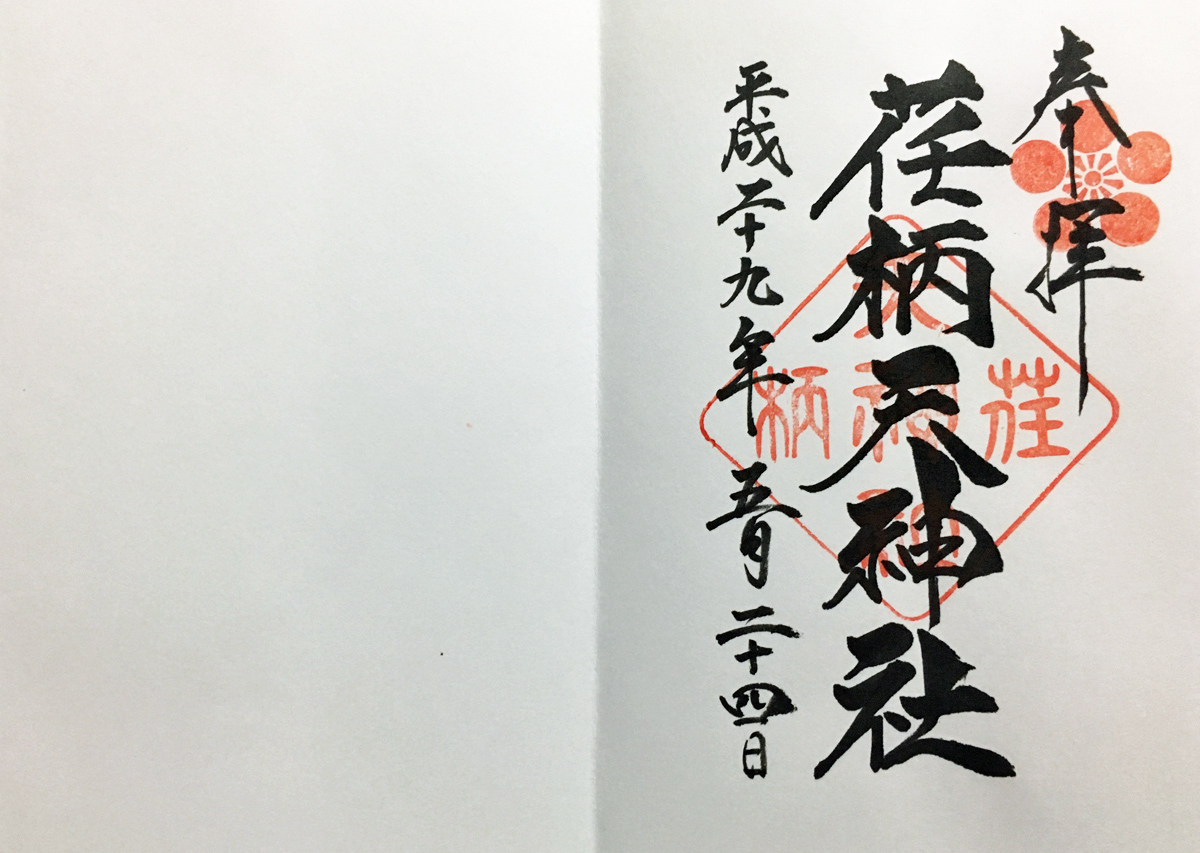 奉拝
荏柄天神社
平成二十九年五月二十四日
荏
天神
柄